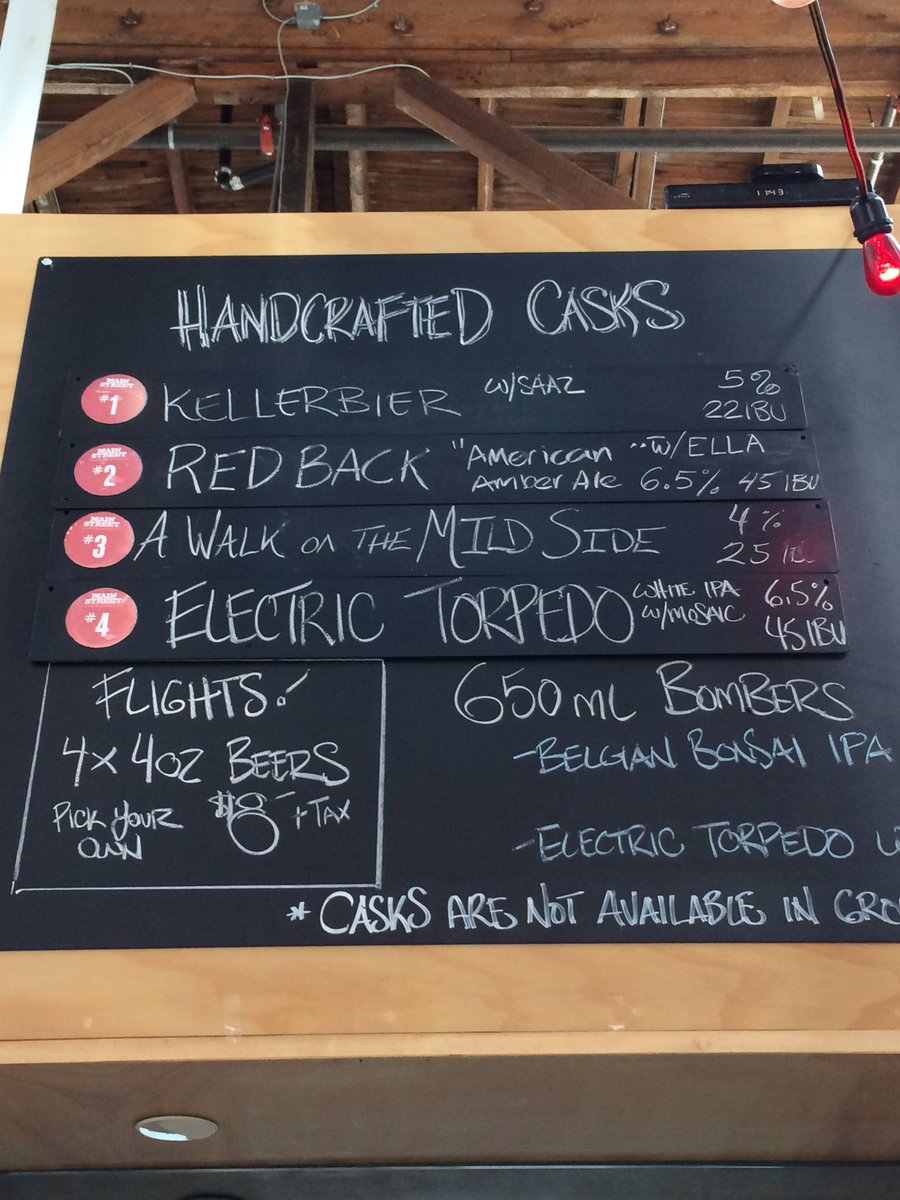 11:43
HANDCRAFTED CASKS
MAIN STREET #1 KELLERBIER W/SAAZ 5% 22 IBU
MAIN STREET #2 RED BACK "American Amber Ale" W/ELLA 6.5% 45 IBU
MAIN STREET #3 A WALK ON THE MILD SIDE 4% 25
MAIN STREET #4 ELECTRIC TORPEDO WHITE IPA W/MOSAIC 6.5% 45 IBU
FLIGHTS!
4x 4oz BEERS
PICK YOUR OWN $8 + TAX
650 ML BOMBERS
-BELGIAN BONSAI IPA
-ELECTRIC TORPEDO
* CASKS ARE NOT AVAILABLE IN